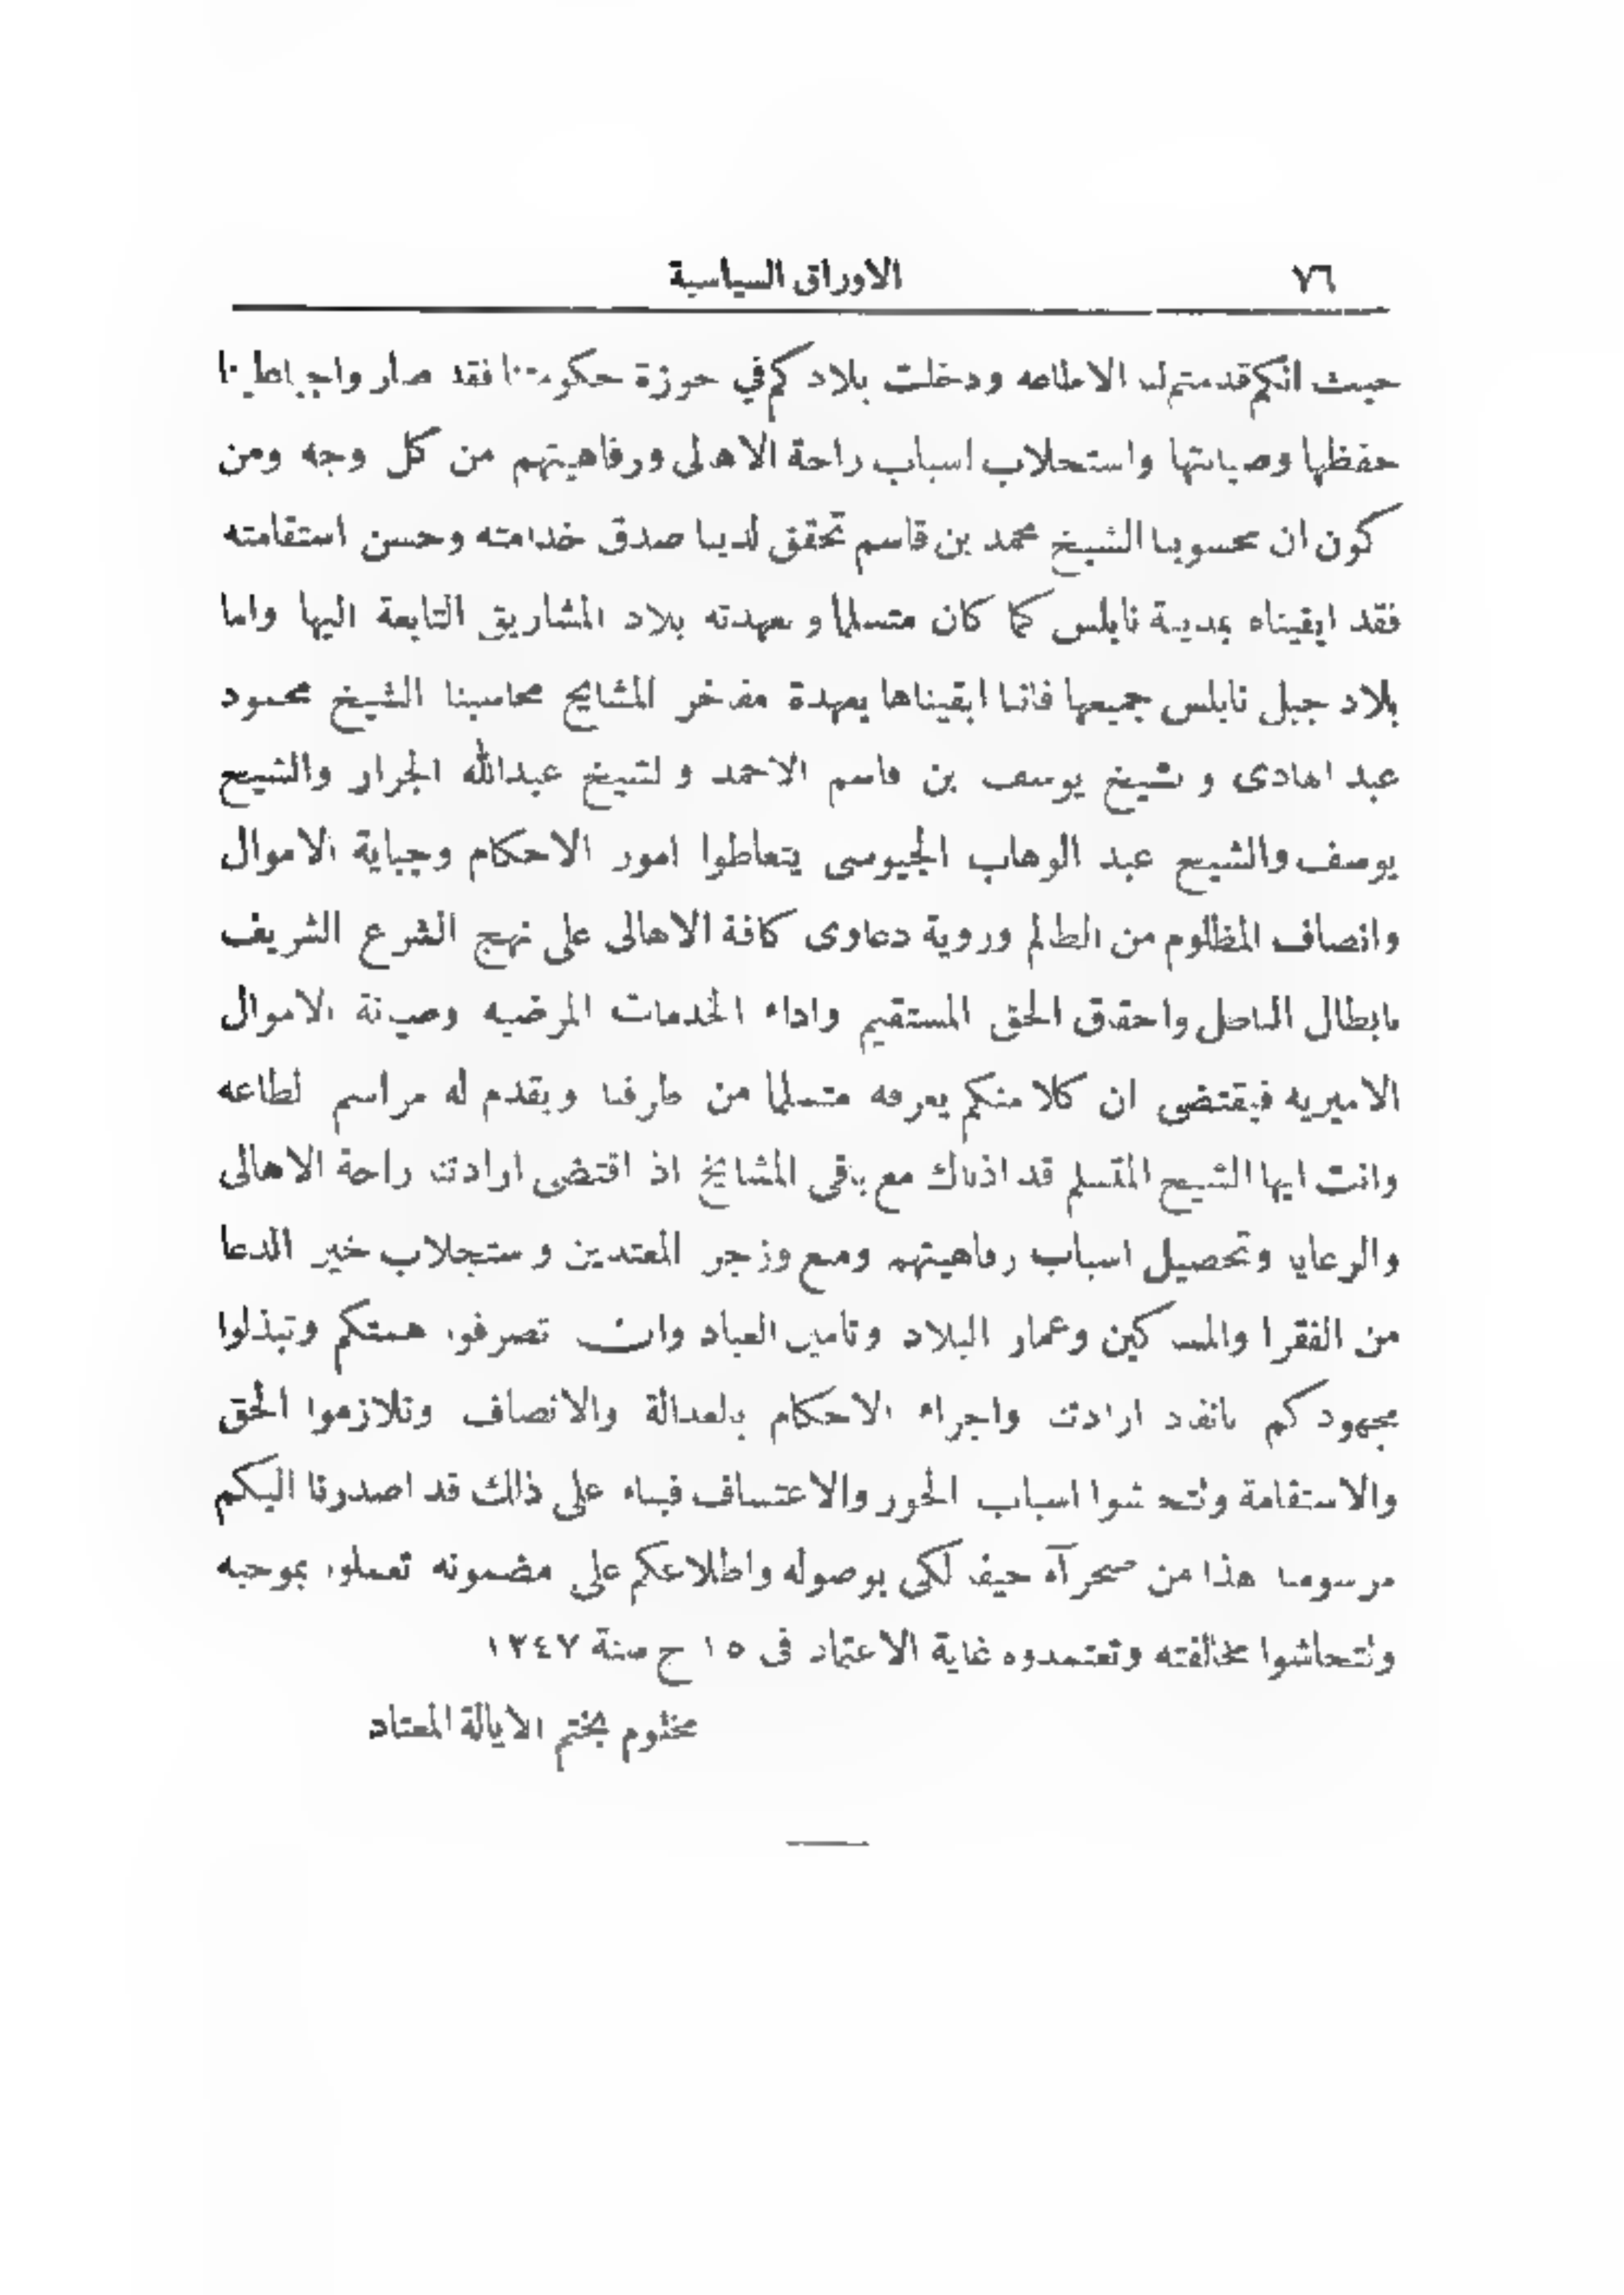 ٧٦
الاوراق السياسية
حيث انكم قدمتم لنا الاطاعه ودخلت بلادكم في حوزة حكومتنا فقد صار واجباً علينا
حفظها وصيانتها واستجلاب اسباب راحة الاهالى ورفاهيتهم من كل وجه ومن
كون ان محسوبنا الشيخ محمد بن قاسم تحقق لدينا صدق خدامته وحسن استقامته
فقد ابقيناه بمدينة نابلس كما كان متسلما و بعهدته بلاد المشاريق التابعة اليها واما
بلاد جبل نابلس جميعها فاننا ابقيناها بعهدة مفاخر المشايخ محاسبنا الشيخ محمود
عبد الهادى و لشيخ يوسف بن قاسم الاحمد و لشيخ عبدالله الجرار والشيخ
يوسف والشيخ عبد الوهاب الجيوسى يتعاطوا امور الاحكام وجباية الاموال
وانصاف المظلوم من الظالم وروية دعاوى كافة الاهالى على نهج الشرع الشريف
بابطال الباطل واحقاق الحق المستقيم واداء الخدمات المرضيه وصيانة الاموال
الاميريه فيقتضى ان كلا منكم يعرفه متسلما من طرفنا ويقدم له مراسم لطاعه
وانت ايها الشيخ المتسلم قد اذناك مع باقى المشايخ اذ اقتضى ارادتنا راحة الاهالى
والرعايا وتحصيل اسباب رفاهيتهم ومنع وزجر المعتدين و ستجلاب خير الدعا
من الفقرا والمساكين وعمار البلاد وتامين العباد وان تصرفوا همتكم وتبذلوا
مجهودكم بانفاد ارادتنا واجراء الاحكام بالعدالة والانصاف وتلازموا الحق
والاستقامة ولتحاشوا اسباب الجور والاعتساف فبناء على ذالك قد اصدرنا اليكم
مرسومنا هذا من صحرآء حيفا لكى بوصوله واطلاعكم على مضمونه تعملوا بموجبه
ولتحاشوا مخالفته وتعتمدوه غاية الاعتماد فى ١٥ ج سنة ١٢٤٧
مختوم بختم الايالة المعتاد